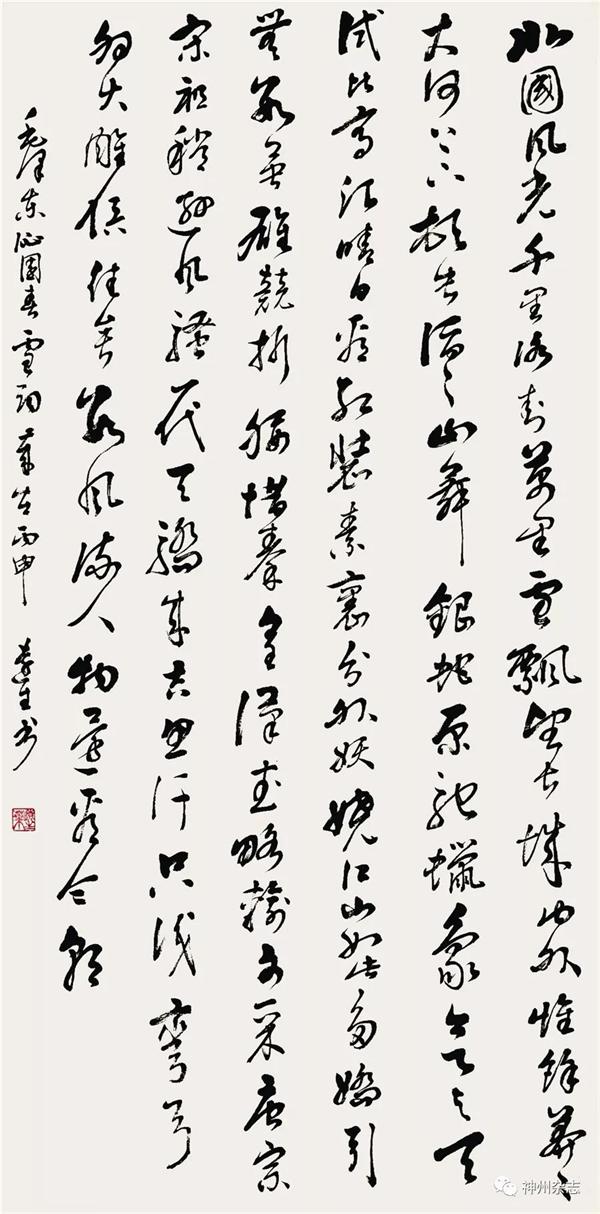 北國风光千里冰封萬里雪飘望长城内外惟餘莽々
大河上下顿失滔々山舞銀蛇原驰蠟象欲与天
試比高須晴日看红装素裹分外妖娆江山如此多嬌引
無數英雄競折腰惜秦皇漢武略輸文采唐宗
宋祖稍逊风骚一代天驕成吉思汗只识彎弓
射大雕俱往矣数风流人物還看今朝
毛泽东沁園春雪词 丙申 书
神州杂志